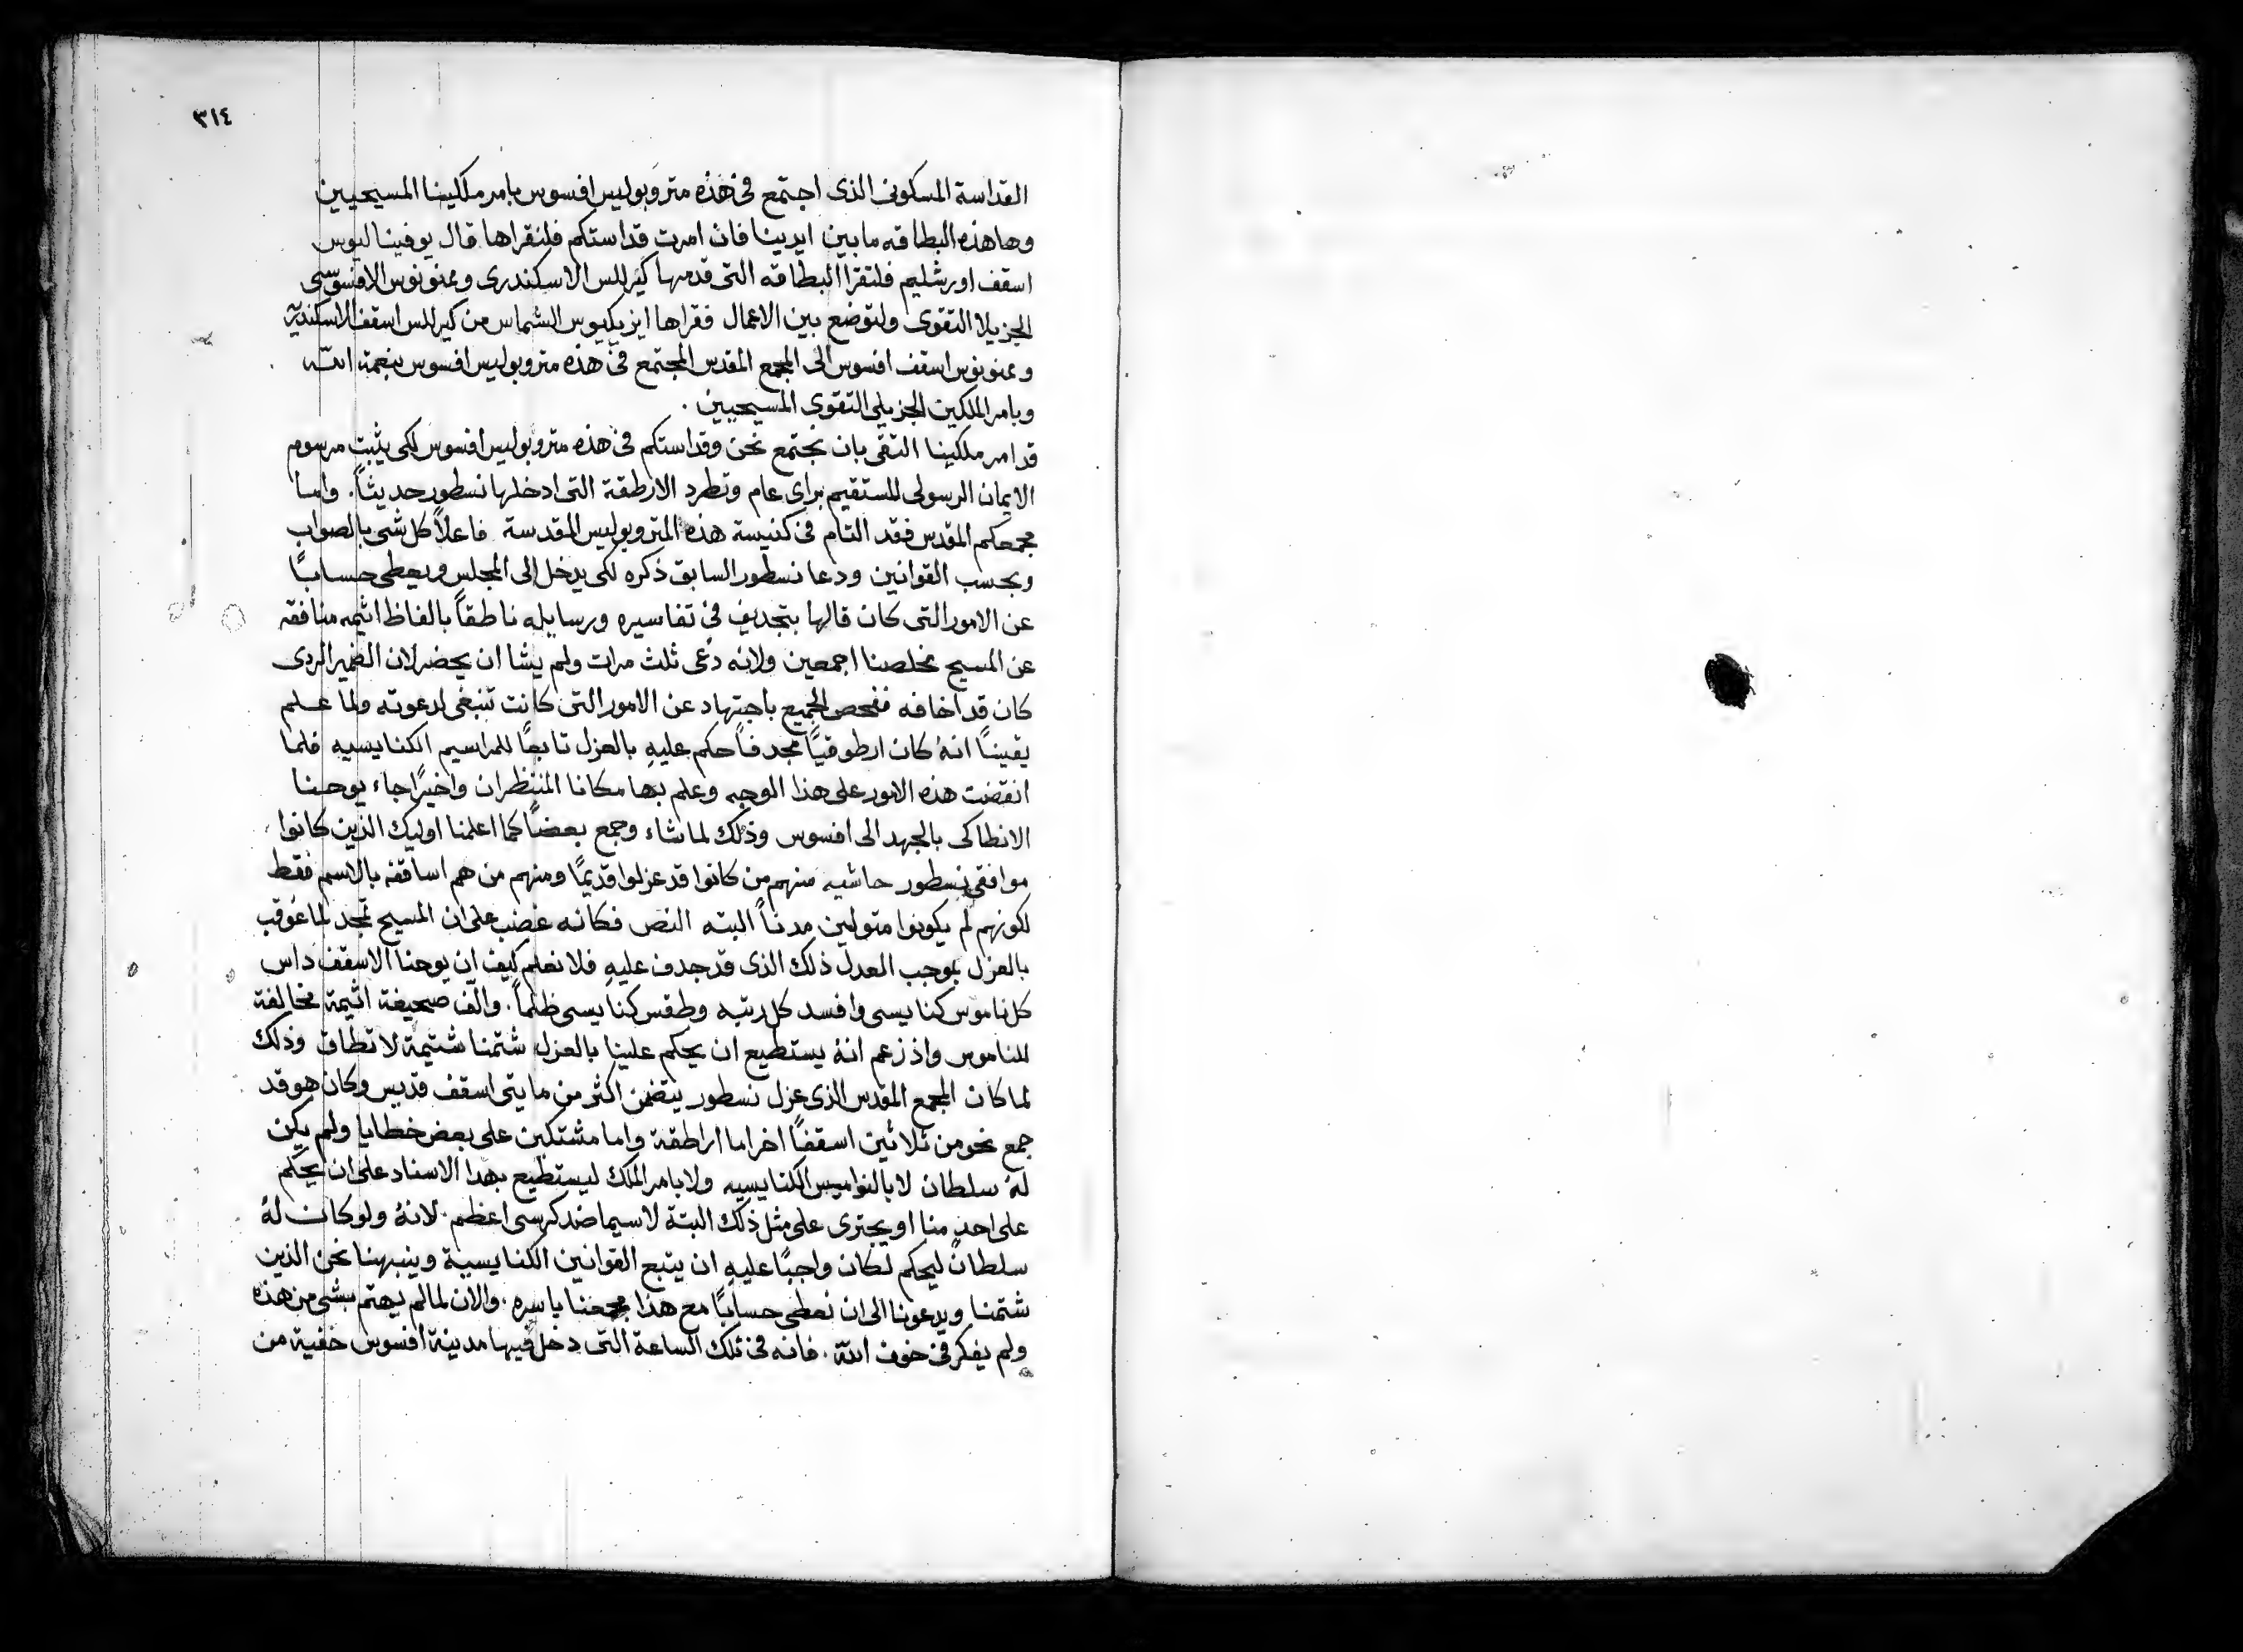 ٣١٤
القداسة المسكونى الذى اجتمع فى هذه متروبوليس افسوس بامر ملكينا المسيحيين
وها هذه البطاقه ما بين ايدينا فان امرت قداستكم فلنقراها قال يوفيناليوس
اسقف اورشليم فلتقرا البطاقه التى قدمها كيرللس الاسكندرى وممنونوس الافسوسى
الجزيلا التقوى ولتوضع بين الاعمال فقراها ايزيكيوس الشماس من كيرللس اسقف الاسكندرية
وممنونوس اسقف افسوس الى المجمع المقدس المجتمع فى هذه متروبوليس افسوس بنعمة الله
وبامر الملكين الجزيلى التقوى المسيحيين .
قد امر ملكينا التقى بان نجتمع نحن وقداستكم فى هذه متروبوليس افسوس لكى يثبت مرسوم
الايمان الرسولى المستقيم براى عام وتطرد الارطقة التى ادخلها نسطور حديثاً . واما
مجمعكم المقدس فقد التام فى كنيسة هذه المتروبوليس المقدسة فاعلاً كل شى بالصواب
وبحسب القوانين ودعا نسطور السابق ذكره لكى يدخل الى المجلس ويعطى حساباً
عن الامور التى كان قالها بتجديف فى تفاسيره ورسايله ناطقاً بالفاظ اثيمه منافقه
عن المسيح مخلصنا اجمعين ولانه دُعى ثلث مرات ولم يشا ان يحضر لان الضمير الردى
كان قد اخافه ففحص الجميع باجتهاد عن الامور التى كانت تنبغى لدعوته ولما علم
يقيناً انهُ كان ارطوقيّاً مجدفاً حكم عليهِ بالعزل تابعاً للمراسيم الكنايسيه فلما
انقضت هذه الامور على هذا الوجه وعلم بها مكانا المنتظران واخيراً جاء يوحنا
الانطاكى بالجهد الى افسوس وذلك لما شاء وجمع بعضاً كما اعلمنا اوليك الذين كانوا
موافقى نسطور حاشيه منهم من كانوا قد عزلوا قديماً ومنهم من هم اساقفه بالاسم فقط
لكونهم لم يكونوا متولين مدناً البته النص فكانه غضب على ان المسيح تمجد لما عُوقب
بالعزل بموجب العدل ذلك الذى قد جدف عليهِ فلا نعلم كيف ان يوحنا الاسقف داس
كل ناموس كنايسى وافسد كل رتبه وطقس كنايسى ظلماً . والّف صحيفة اثيمة مخالفة
للناموس واذ زعم انهُ يستطيع ان يحكم علينا بالعزل شتمنا شتيمة لا تطاق وذلك
لما كان المجمع المقدس الذى عزل نسطور يتضمن اكثر من مايتى اسقف قديس وكان هو قد
جمع نحو من ثلاثين اسقفاً اخر اما اراطقة واما مشتكين على بعض خطايا ولم يكن
لهُ سلطان لا بالنواميس الكنايسيه ولا بامر الملك ليستطيع بهذا الاسناد على ان يحكم
على احدٍ منا او يجترى على مثل ذلك البتة لاسيما ضد كرسى اعظم . لانهُ ولو كان لهُ
سلطانً ليحكم لكان واجباً عليهِ ان يتبع القوانين الكنايسية وينبهنا نحن الذين
شتمنا ويدعونا الى ان نعطى حساباً مع هذا مجمعنا باسره . والان لما لم يهتم بشى من هذه
ولم يفكر فى خوف الله . فانه فى تلك الساعة التى دخل فيها مدينة افسوس خفية من